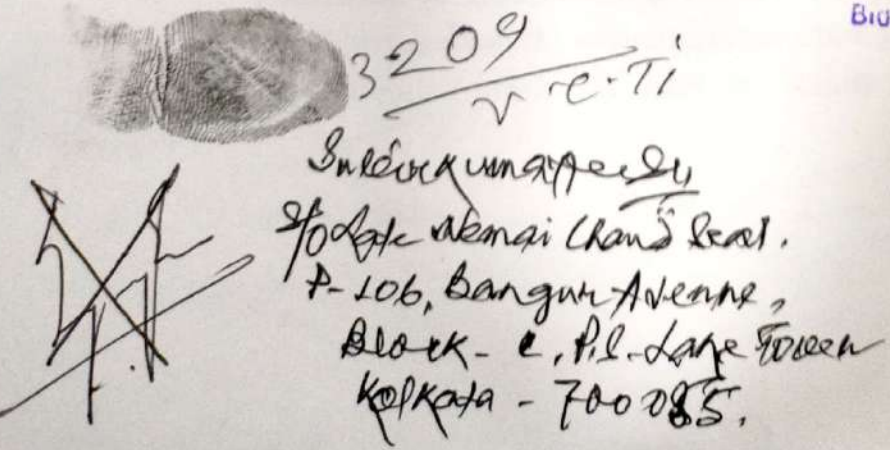 Bio
3209
v c. Ti
S/o Late Nemai Chand Seal.
P-106, Bangur Avenue,
Block - C, P.S. Lake Town
Kolkata - 700055.